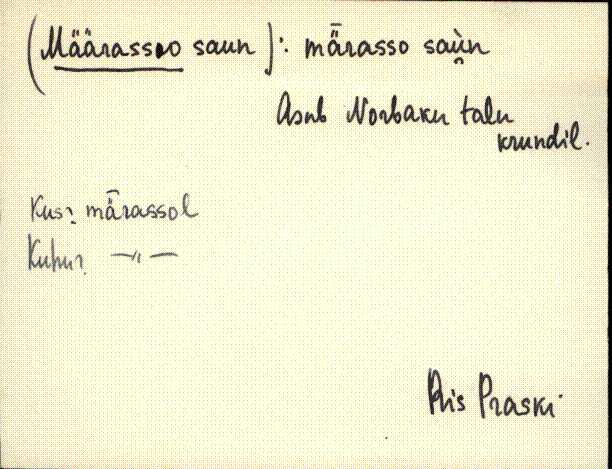 (Määrassoo saun): mǟrasso saùn
Asub Norbaku talu
krundil.
Kus? mǟrassol
Kuhu? —"—
Phs Praski